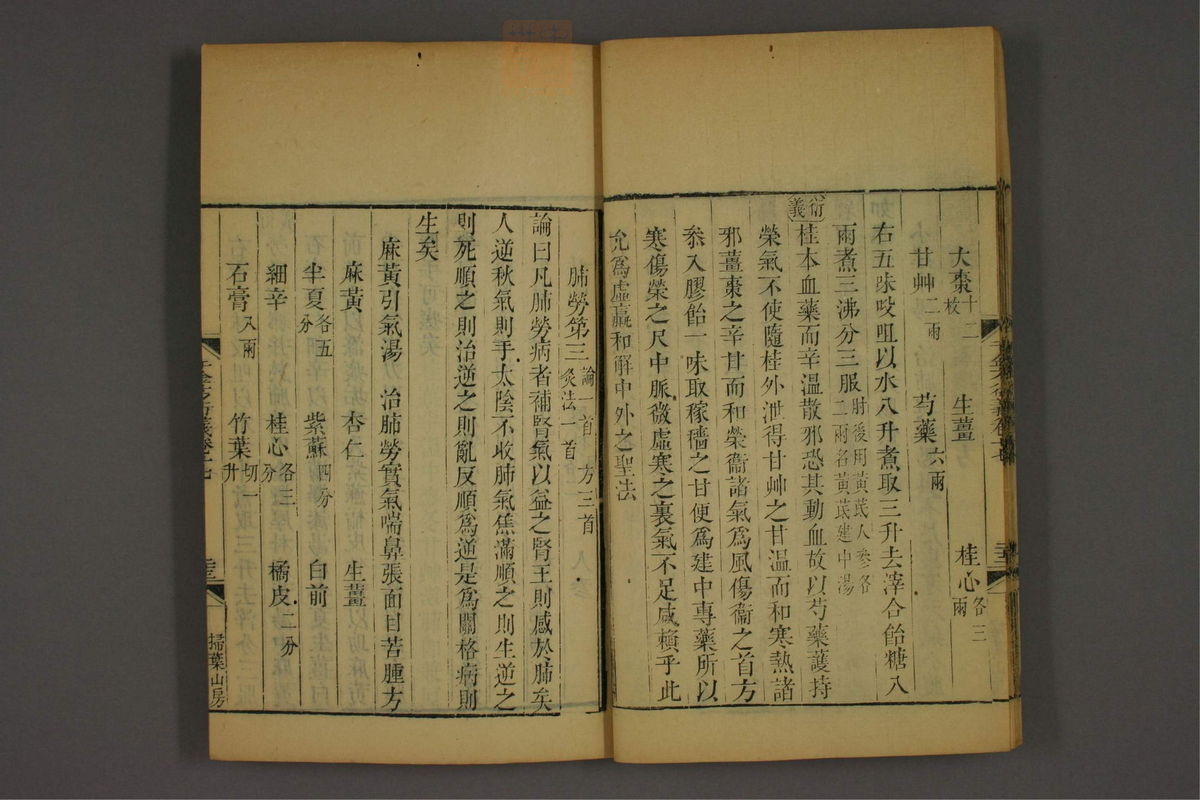 大棗十二枚 生薑 桂心各三兩
甘艸二兩 芍藥六兩
右五味㕮咀以水八升煮取三升去滓合飴糖八
兩煮三沸分三服肘後用黃芪人參各二兩名黃芪建中湯
衍義桂本血藥而辛溫散邪恐其動血故以芍藥護持
榮氣不使隨桂外泄得甘艸之甘溫而和寒熱諸
邪薑棗之辛甘而和榮衞諸氣爲風傷衞之首方
叅入膠飴一味取稼穡之甘便爲建中專藥所以
寒傷榮之尺中脈微虛寒之裏氣不足咸賴乎此
允爲虛羸和解中外之聖法
肺勞第三論一首 方三首灸法一首
論曰凡肺勞病者補腎氣以益之腎王則感於肺矣
人逆秋氣則手太陰不收肺氣焦滿順之則生逆之
則死順之則治逆之則亂反順爲逆是爲關格病則
生矣
麻黃引氣湯 治肺勞實氣喘鼻張面目苦腫方
麻黃 杏仁 生薑
半夏各五分 紫蘇四分 白前
細辛 桂心各三分 橘皮二分
石膏八兩 竹葉切一升
掃葉山房